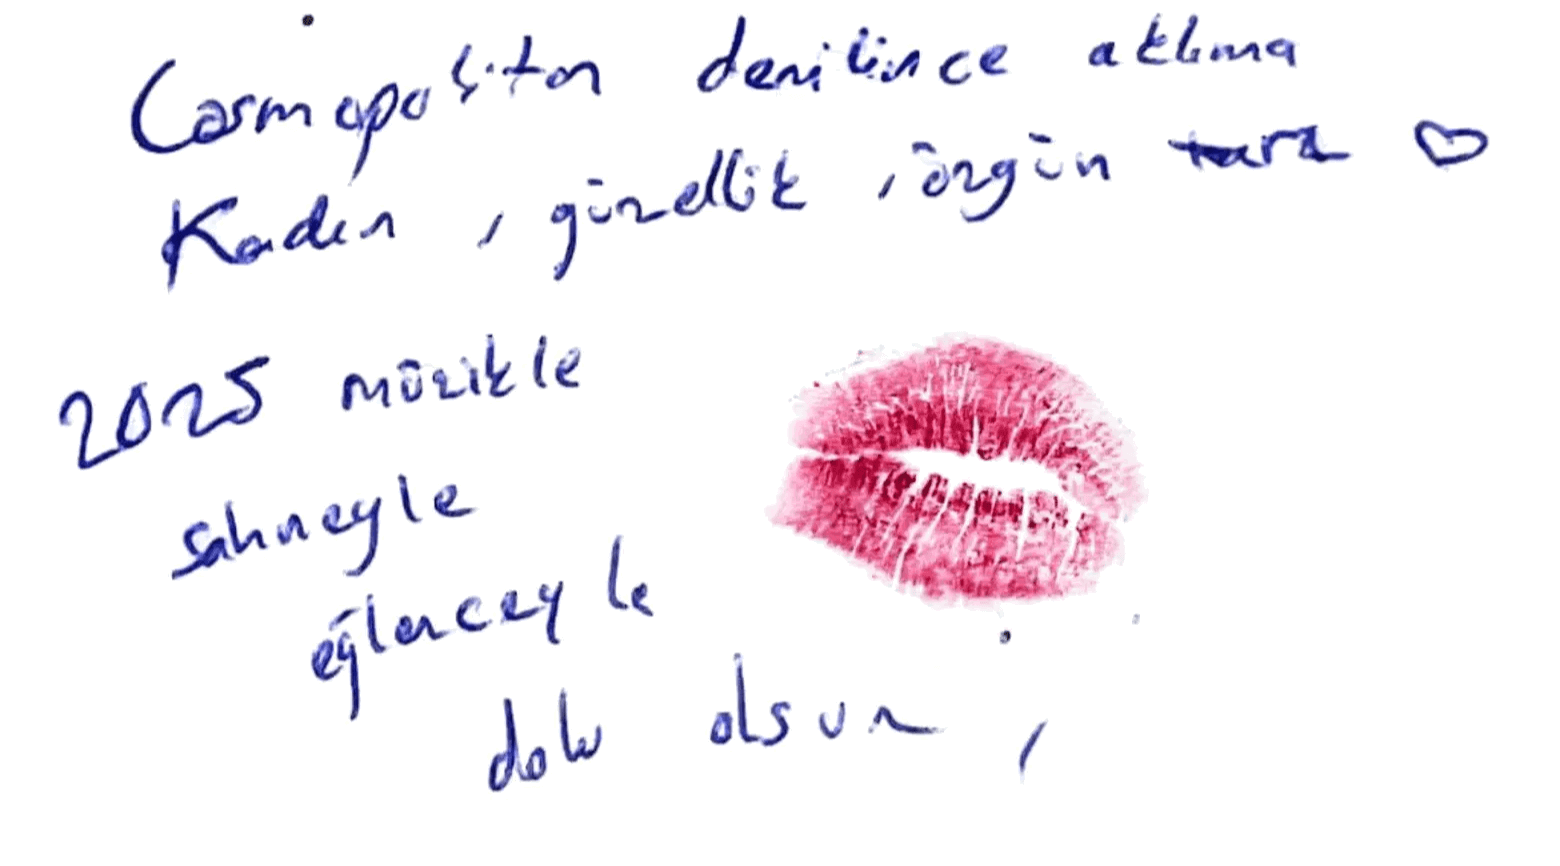 Cosmopolitan denilince aklıma
Kadın, güzellik, özgün tarz ♡
2025 müzikle
sahneyle
eğlenceyle
dolu olsun,